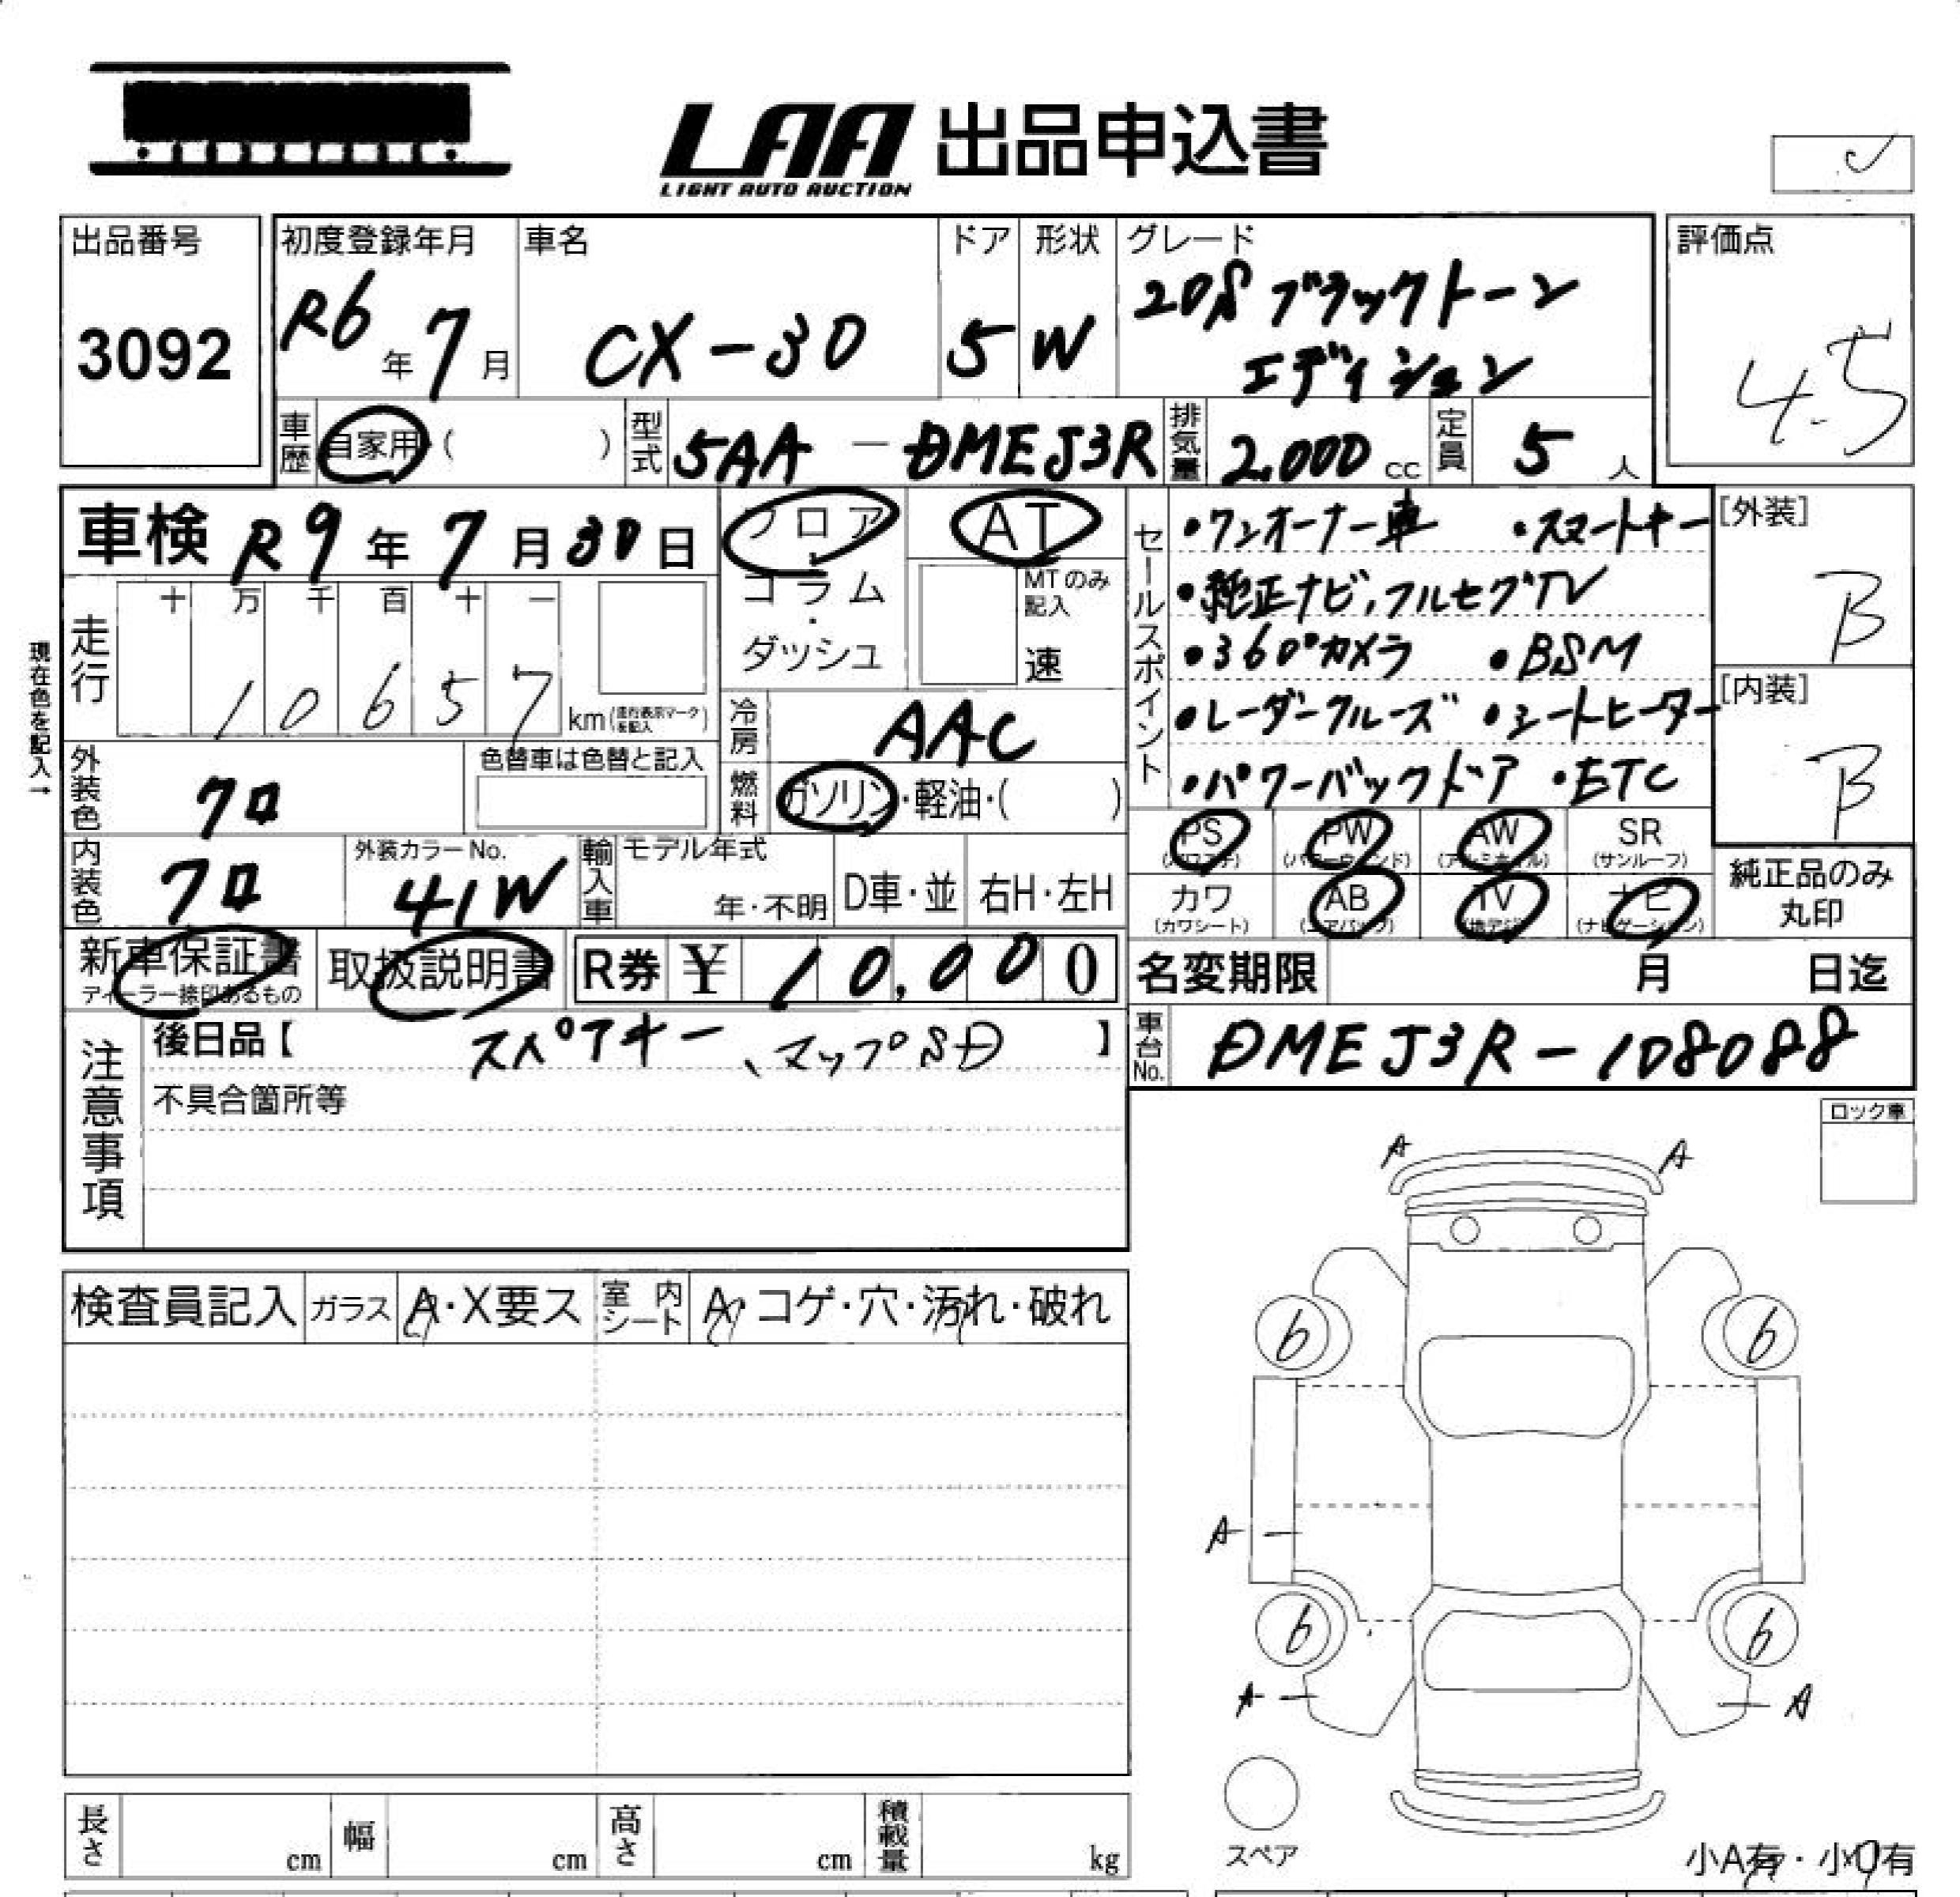 LAA 出品申込書
LIGHT AUTO AUCTION
出品番号
3092
初度登録年月
R6年7月
車名
CX-30
ドア
5
形状
W
グレード
20S ブラックトーン
エディション
評価点
4.5
車歴
自家用・( )
型式
5AA-DMEJ3R
排気量
2,000 cc
定員
5人
車検 R9年7月30日
フロア・コラム・ダッシュ
AT
MTのみ記入
速
現在色を記入→
走行
十 万 千 百 十 一
10657
km(走行表示マークを記入)
冷房
AAC
外装色
クロ
色替車は色替と記入
燃料
ガソリン・軽油・( )
内装色
クロ
外装カラーNo.
41W
輸入車
モデル年式
年・不明
D車・並
右H・左H
セールスポイント
・ワンオーナー車 ・スマートキー
・純正ナビ,フルセグTV
・360°カメラ ・BSM
・レーダークルーズ ・シートヒーター
・パワーバックドア ・ETC
[外装]
B
[内装]
B
PS PW AW SR
(パワステ) (パワーウィンド) (アルミホイル) (サンルーフ)
カワ AB TV ナビ
(カワシート) (エアバック) (地デジ) (ナビゲーション)
純正品のみ
丸印
新車保証書
ディーラー捺印あるもの
取扱説明書
R券 ¥ 10,000
名変期限 月 日迄
注意事項
後日品【 スペアキー、マップSD 】
不具合箇所等
車台No.
DMEJ3R-108088
ロック車
A A
検査員記入 ガラス A・X要ス 室内シート A・コゲ・穴・汚れ・破れ
6 6
A
6 6
A A
スペア
小A有・小U有
長さ cm 幅 cm 高さ cm 積載量 kg